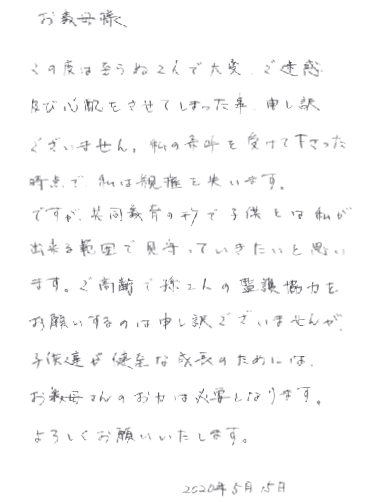 お義母様、
この度は至らぬ2人で大変、ご迷惑
及び心配をさせてしまった事、申し訳
ございません。私の条件を受けて下さった
時点で、私は親権を失います。
ですが、共同養育の形で子供とは私が
出来る範囲で見守っていきたいと思い
ます。ご高齢で孫2人の監護協力を
お願いするのは申し訳ございませんが、
子供達が健全な成長のためには、
お義母さんのお力は必要となります。
よろしくお願いいたします。
2020年5月15日